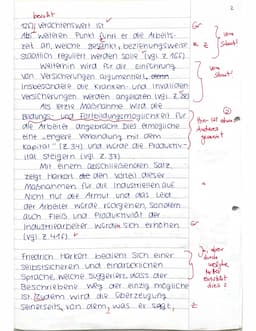 2
besitzt
verachtenswert ist
Als weiteren Punkt führt er die Arbeits-
zeit an, welche gesenkt, beziehungsweise
staatlich reguliert werden solle (vgl. Z.
Weiterhin wird für die Einführung
von Versicherungen argumentiert, denn
insbesondere die Kranken- und Invaliden
versicherungen werden angeraten (vgl. Z.
Als erste Maßnahme wird die
Bildungs- und Fortbildungsmöglichkeit für
die Arbeiter angebracht. Dies ermögliche
eine "engere Verbindung mit dem
Kapital" (Z. 34) und würde die Produktivi-
tät steigern (vgl. Z. 37)
Mit einem abschließenden Satz,
zeigt Harkort den Vorteil dieser
Maßnahmen für die Industriellen auf.
Nicht nur die Armut und das Leid
der Arbeiter würde rückgehen, sondern
auch Fleiß und Produktivität der
Industriearbeiter würden sich erhöhen
(vgl. Z.
Friedrich Harkort bedient sich einer
selbstsicheren und eindrücklichen
Sprache, welche suggeriert, dass der
Beschriebene Weg der einzig mögliche
ist. Zudem wird die Überzeugung
seinerseits, von dem, was er sagt,
Gr
Z
vom
Staat!
vom
Staat!
Hier ist etwas
Anderes
gemeint
Gr
Ja, aber
durch
welche
Mittel
Z